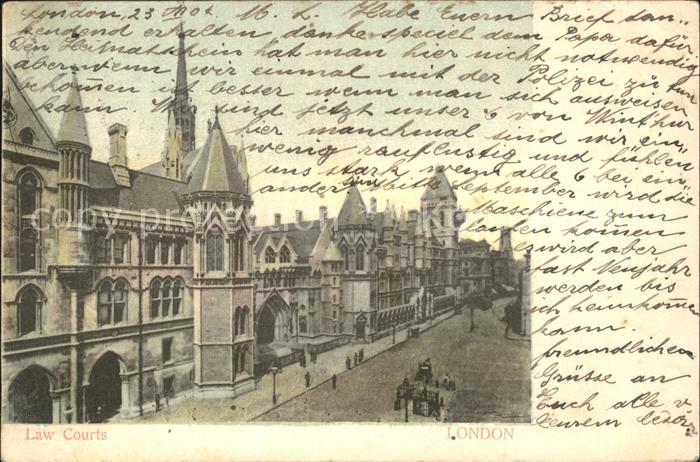 London, 23 Nov M. L. Habe Euern Brief dan-
kendend erhalten, danke speciel dem Papa dafür
Den Heimatschein hat man hier nicht notwendig
aber wenn wir einmal mit der Polizei zu tun
bekommen ist besser wenn man sich ausweisen
kann. Wir sind jetzt unser 6 von Winthur
hier manchmal sind wir ein
wenig rauflustig und fühlen
uns stark wenn alle 6 bei ein-
ander sind. bitte September wird die
Maschiene zum
laufen kommen
wird aber
fast Neujahr
werden bis
ich heimkommen
kann.
freundlichen
Grüsse an
Euch alle v
Eurem
© by www.oldthing.com
Law Courts
LONDON